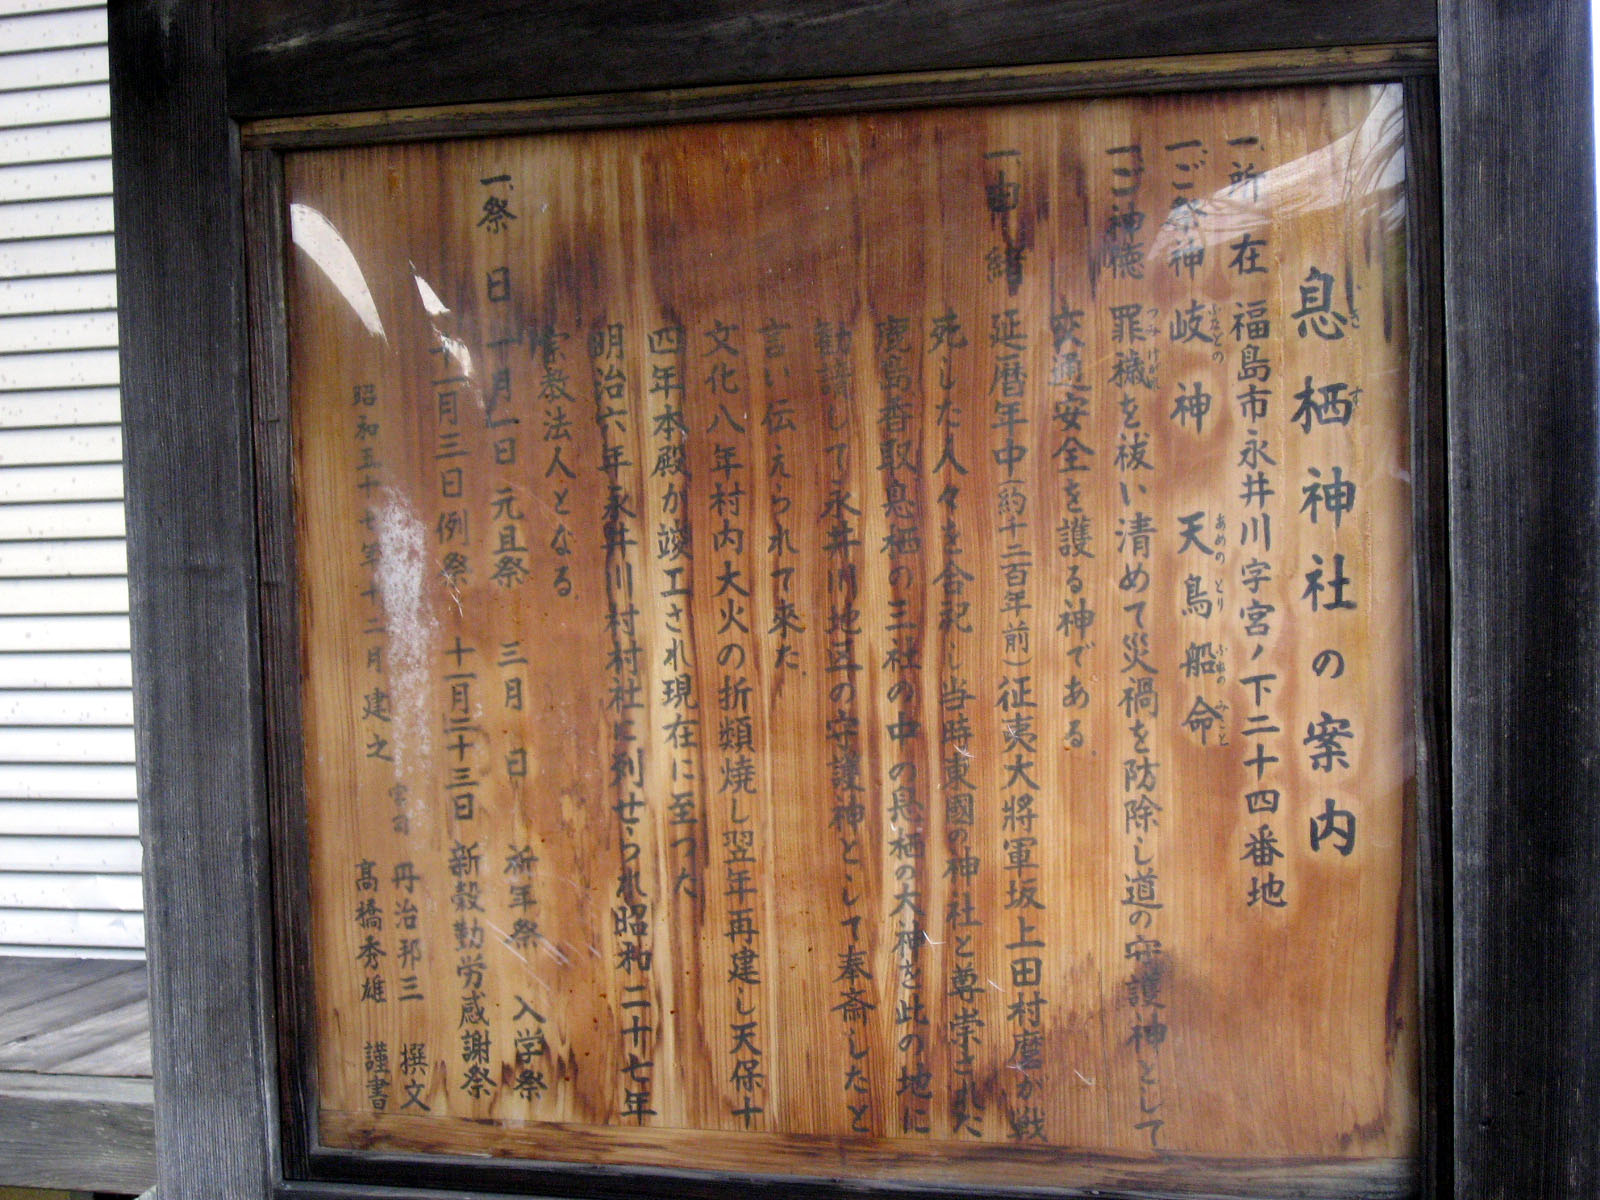 息栖神社の案内
いきす
一、所在 福島市永井川字宮ノ下二十四番地
一、ご祭神 岐神 天鳥船命
ふなどの あめの とり ふねの みこと
一、ご神徳 罪穢を祓い清めて災禍を防除し道の守護神として
つみけがれ
交通安全を護る神である。
一、由緒 延暦年中(約千二百年前)征夷大将軍坂上田村麿が戦
死した人々を合祀し当時東國の神社と尊崇された
鹿島香取息栖の三社の中の息栖の大神を此の地に
勧請して永井川地区の守護神として奉斎したと
言い伝えられて来た。
文化八年村内大火の折類焼し翌年再建し天保十
四年本殿が竣工され現在に至った
明治六年永井川村村社に列せられ昭和二十七年
宗教法人となる。
一、祭日 一月一日元旦祭 三月 日 祈年祭 入学祭
十一月三日例祭 十一月二十三日 新穀勤労感謝祭
昭和五十七年十二月建之
丹治邦三 撰文
髙橋秀雄 謹書